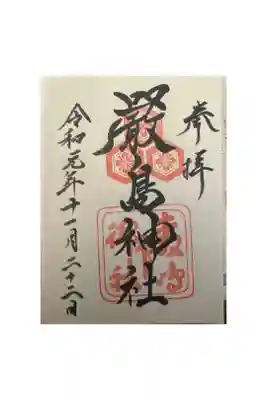 奉拝
嚴島神社
令和元年十一月二十二日